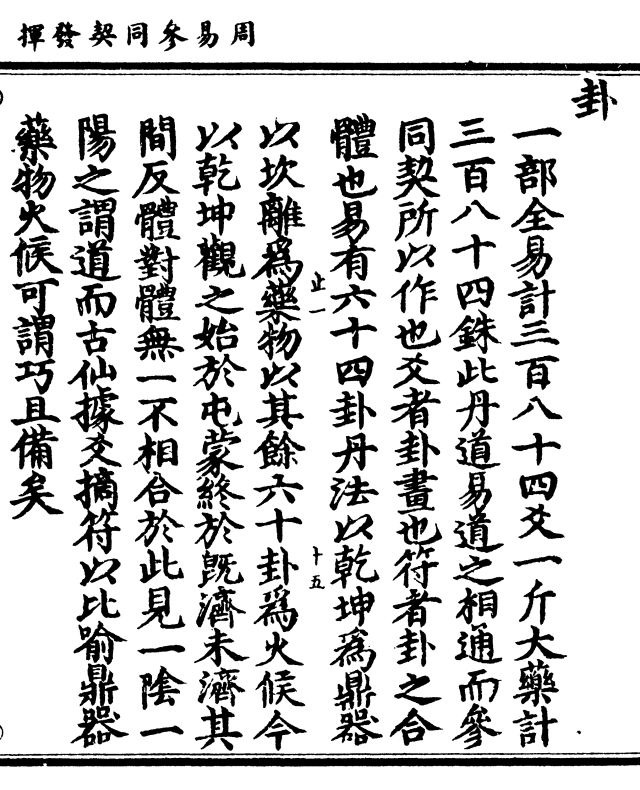 周易參同契發揮
卦
一部全易計三百八十四爻一斤大藥計
三百八十四銖此丹道易道之相通而參
同契所以作也爻者卦畫也符者卦之合
體也易有六十四卦丹法以乾坤為鼎器
止一
十五
以坎離為藥物以其餘六十卦為火候今
以乾坤觀之始於屯蒙終於旣濟未濟其
間反體對體無一不相合於此見一陰一
陽之謂道而古仙據爻摘符以比喻鼎器
藥物火候可謂巧且備矣